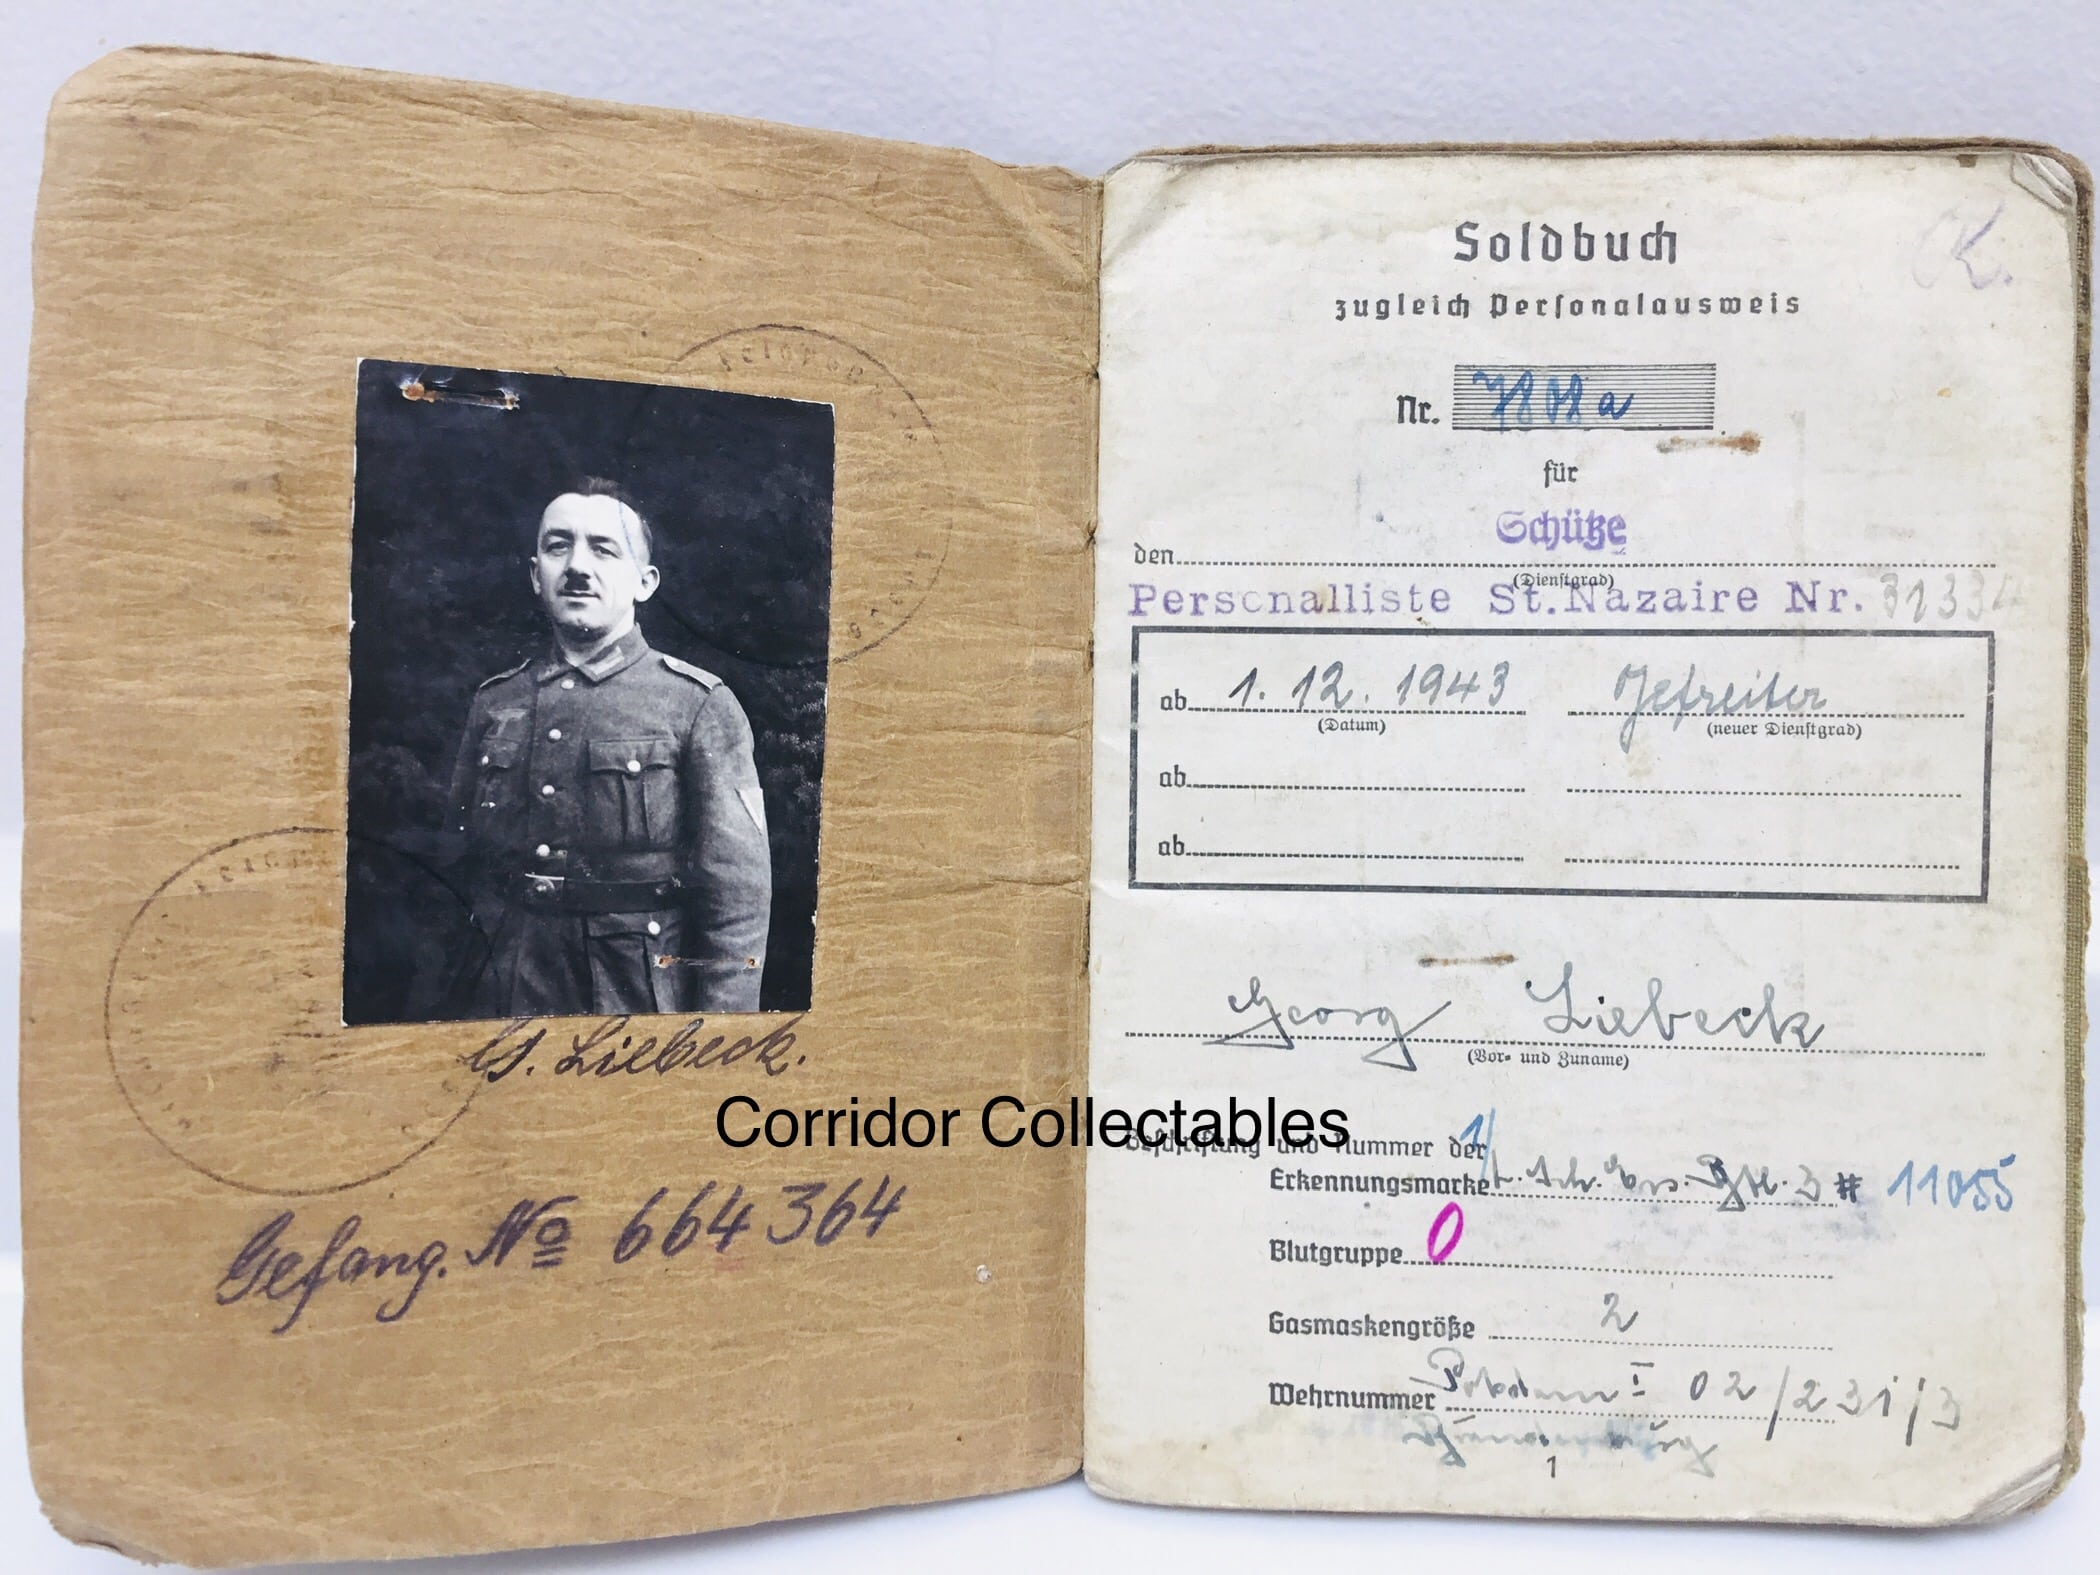 G. Liebeck.
Gefang. No 664 364
Corridor Collectables
Soldbuch
K.
zugleich Personalausweis
Nr. 7808a
für
den Schütze
(Dienstgrad)
Personalliste St.Nazaire Nr. 31334
ab 1. 12. 1943 Gefreiter
(Datum) (neuer Dienstgrad)
ab
ab
Georg Liebeck
(Vor- und Zuname)
Beschriftung und Nummer der
Erkennungsmarke 3 # 11055
Blutgruppe 0
Gasmaskengröße 2
Wehrnummer Potsdam I 02/231/3
1